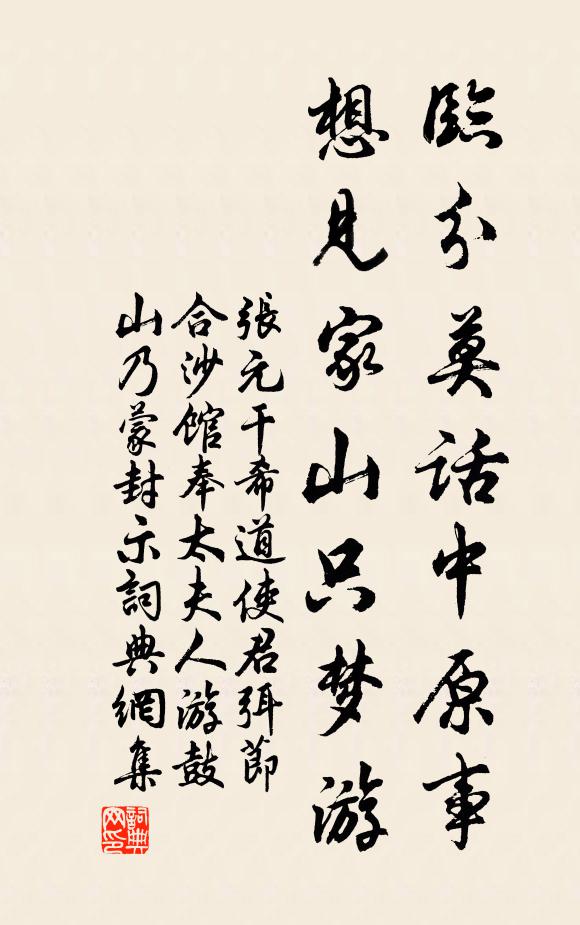 臨分莫話中原事
想見家山只梦游
張元干希道使君弭節
合沙館奉太夫人游鼓
山乃蒙封示詞典網集
詞典
网印